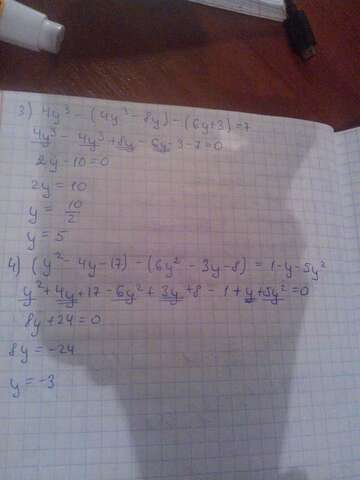 3) 4y³ - (4y³ - 8y) - (6y+3) = 7
4y³ - 4y³ + 8y - 6y - 3 - 7 = 0
2y - 10 = 0
2y = 10
y = 10/2
y = 5
4) (y² - 4y - 17) - (6y² - 3y - 8) = 1 - y - 5y²
y² + 4y + 17 - 6y² + 3y + 8 - 1 + y + 5y² = 0
8y + 24 = 0
8y = -24
y = -3